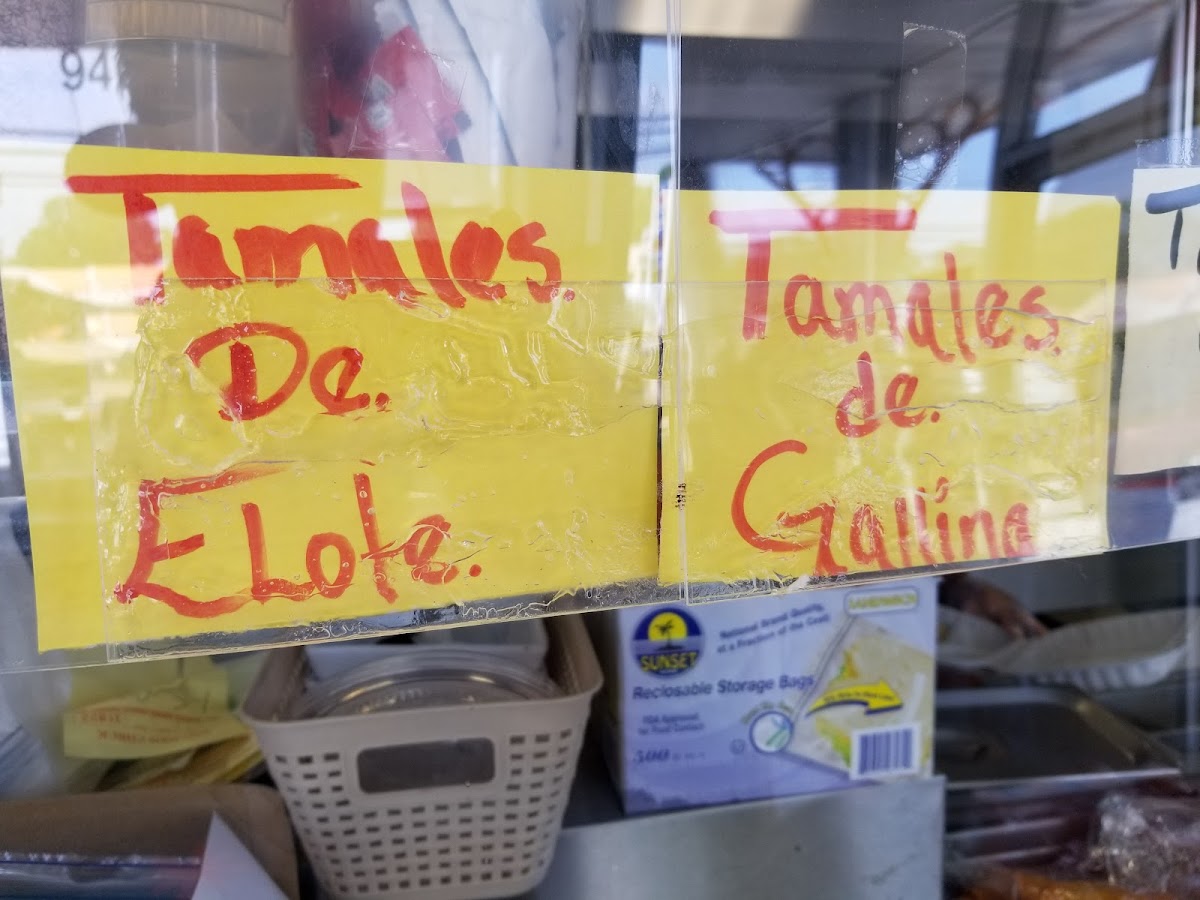 94
Tamales.
De.
Elote.
Tamales.
de.
Gallina
SUNSET
National Brand Quality,
at a Fraction of the Cost!
SANDWICH
Reclosable Storage Bags
FDA Approved
for Food Contact
500